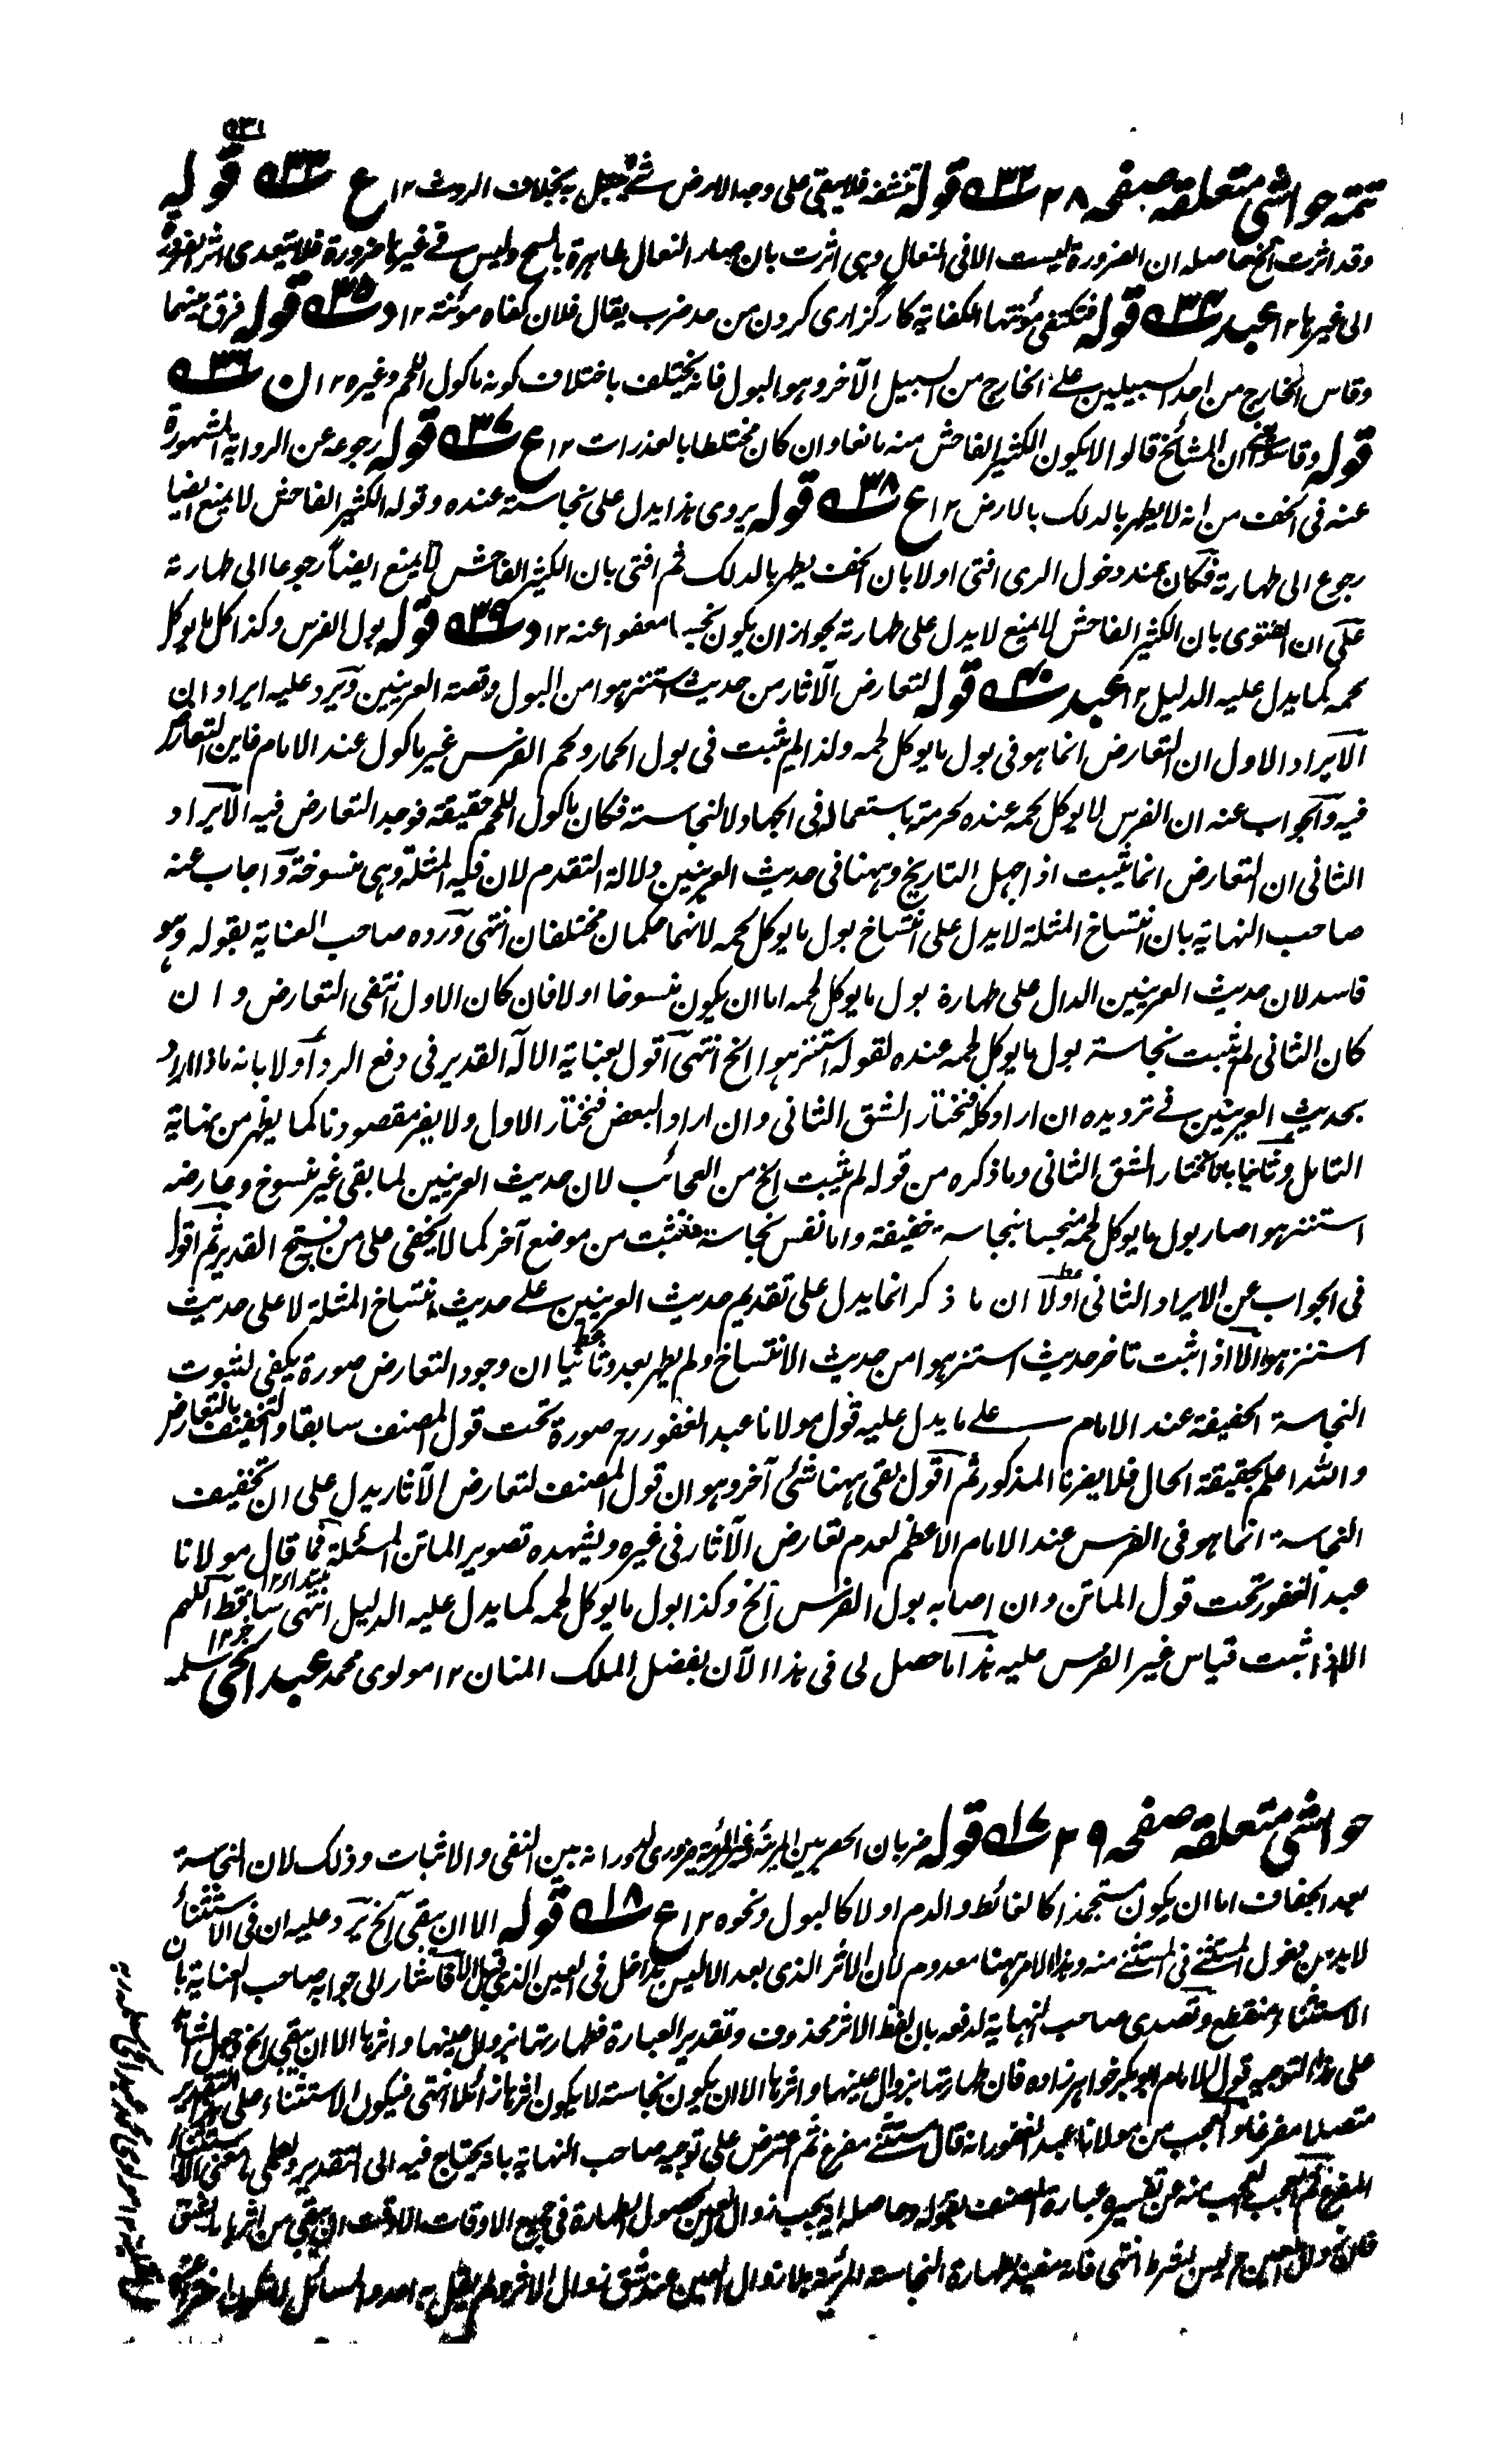 تتمة حواشي متعلقه صفحه ٢٨ ٣٢ قوله تنشفه فلا يبقى على وجه الارض شئ يحمل به بخلاف الروث ١٢ ع ٣٣ قوله
وقد اثرت الخ حاصله ان الضرورة ليست الا فى النعال وهى اثرت بان صار النعال طاهرة بالمسح وليس فے غيرها ضرورة فلا يتعدى اثر الضرورة
الى غيرها ١٢ عبد ٣٤ قوله فتكتفى مؤنتها الكفاية كارگزارى كردن من حد ضرب يقال فلان كفاه مؤنته ١٢ د ٣٥ قوله فرق بينهما
وقاس الخارج من احد السبيلين علے الخارج من السبيل الآخر وهو البول فانه يختلف باختلاف كونه ماكول اللحم وغيره ١٢ ن ٣٦
قوله وقاسوا ان المشائخ قالوا لا يكون الكثير الفاحش منه مانعا وان كان مختلطا بالعذرات ١٢ ع ٣٧ قوله رجوعه عن الرواية المشهورة
عنه فى الخف من انه لا يطهر بالدلك بالارض ١٢ ع ٣٨ قوله يروى هذا يدل على نجاسة عنده وقوله الكثير الفاحش لا يمنع ايضا
رجوع الى طهارته فكان عند دخول الرى افتى اولا بان الخف يطهر بالدلك ثم افتى بان الكثير الفاحش لا يمنع ايضا رجوعا الى طهارته
على ان الفتوى بان الكثير الفاحش لا يمنع لا يدل على طهارته لجواز ان يكون نجسا معفوا عنه ١٢ د ٣٩ قوله بول الفرس وكذا كل ما يوكل
لحمه كما يدل عليه الدليل ١٢ عبد ٤٠ قوله لتعارض الآثار من حديث استنزهوا من البول وقصة العرنيين ويرد عليه ايرادان
الايراد الاول ان التعارض انما هو فى بول ما يوكل لحمه ولذا لم يثبت فى بول الحمار ولحم الفرس غير ماكول عند الامام فاين التعارض
فيه والجواب عنه ان الفرس لا يوكل لحمه عنده لحرمته باستعماله فى الجهاد لا لنجاسته فكان ماكول اللحم حقيقة فوجد التعارض فيه الايراد
الثانى ان التعارض انما يثبت اذا جهل التاريخ وههنا فى حديث العرنيين دلالة التقدم لان فيه المثلة وهى منسوخة واجاب عنه
صاحب النهاية بان انتساخ المثلة لا يدل على انتساخ بول ما يوكل لحمه لانهما حكمان مختلفان انتهى ورده صاحب العناية بقوله وهو
فاسد لان حديث العرنيين الدال على طهارة بول ما يوكل لحمه اما ان يكون منسوخا اولا فان كان الاول انتفى التعارض وان
كان الثانى لم يثبت نجاسة بول ما يوكل لحمه عنده لقوله استنزهوا الخ انتهى اقول بعناية الاله القدير فى دفع الرد اولا بانه ماذا اراد
بحديث العرنيين فے ترديده ان اراد كله فنختار الشق الثانى وان اراد البعض فنختار الاول ولا يضر مقصودنا كما يظهر من نهاية
التامل وثانيا بانا نختار الشق الثانى وما ذكره من قوله لم يثبت الخ من العجائب لان حديث العرنيين لما بقى غير منسوخ وعارضه
استنزهوا صار بول ما يوكل لحمه نجسا بنجاسة خفيفة واما نفس نجاسته فثبت من موضع آخر كما لا يخفى على من فتح القدير ثم اقول
فى الجواب عن الايراد الثانى اولا ان ما ذكر انما يدل على تقديم حديث العرنيين علے حديث انتساخ المثلة لا على حديث
استنزهوا الا اذا ثبت تاخر حديث استنزهوا من حديث الانتساخ ولم يظهر بعد وثانيا ان وجود التعارض صورة يكفى لثبوت
النجاسة الخفيفة عند الامام علے ما يدل عليه قول مولانا عبد الغفور رح صورة تحت قول المصنف سابقا والتخفيف بالتعارض
والله اعلم بحقيقة الحال فلا يضرنا المذكور ثم اقول بقى ههنا شئ آخر وهو ان قول المصنف لتعارض الآثار يدل على ان تخفيف
النجاسة انما هو فى الفرس عند الامام الاعظم لعدم تعارض الآثار فى غيره ويشهده تصوير الماتن المسئلة فما قال مولانا
عبد الغفور تحت قول الماتن وان اصابه بول الفرس الخ وكذا بول ما يوكل لحمه كما يدل عليه الدليل انتهى ساقط اللهم
الا اذا ثبت قياس غير الفرس عليه هذا ما حصل لى فى هذا الآن بفضل الملك المنان ١٢ مولوى محمد عبد الحى سلمه
حواشي متعلقه صفحه ٢٩ ١٧ قوله ضربان الحصر بين المرئية وغير المرئية ضرورى لدورانه بين النفى والاثبات وذلك لان النجاسة
بعد الجفاف اما ان يكون متجمدا كالغائط والدم اولا كالبول ونحوه ١٢ ع ١٨ قوله الا ان يبقى الخ يرد عليه ان فى الاستثناء
لابد من دخول المستثنے فى المستثنے منه وهذا الامر ههنا معدوم لان الاثر الذى بعد الا ليس بداخل فى العين الذى قبل الا فاشار الى جوابه صاحب العناية بان
الاستثناء منقطع وتصدى صاحب النهاية لدفعه بان لفظ الاثر محذوف وتقدير العبارة فطهارتها بزوال عينها واثرها الا ان يبقى الخ
على هذا التوجيه قول الامام ابو بكر خواهر زاده فان طهارتها بزوال عينها واثرها الا ان يكون نجاسة لا يكون اثرها زائلا انتهى فيكون الاستثناء على هذا التقدير
متصلا مفرغا والعجب من مولانا عبد الغفور انه قال مستثنے مفرغ ثم اعترض على توجيه صاحب النهاية بانه يحتاج فيه الى التقدير معنى الاستثناء
المفرغ ثم العجب منه عن تفسير عبارة المصنف بقوله وحاصله انه يجب زوال العين لحصول الطهارة فى جميع الاوقات الا وقت ان يبقى من اثرها ما يشق
فان زوال العين ليس بشرط انتهى فانه مفيد لطهارة النجاسة المرئية بلا زوال العين عند شق زوال الاثر ولم يقل به احد